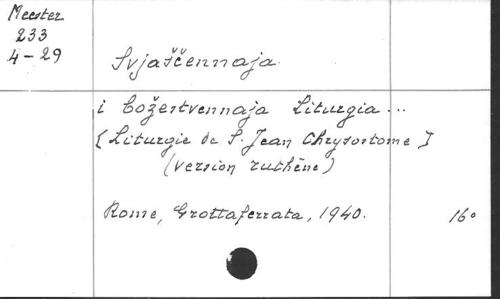 Meester
233
4-29
Svjaščennaja
i Božestvennaja Liturgia...
[Liturgie de S. Jean Chrysostome]
(version ruthène)
Rome, Grottaferrata, 1940.
16°